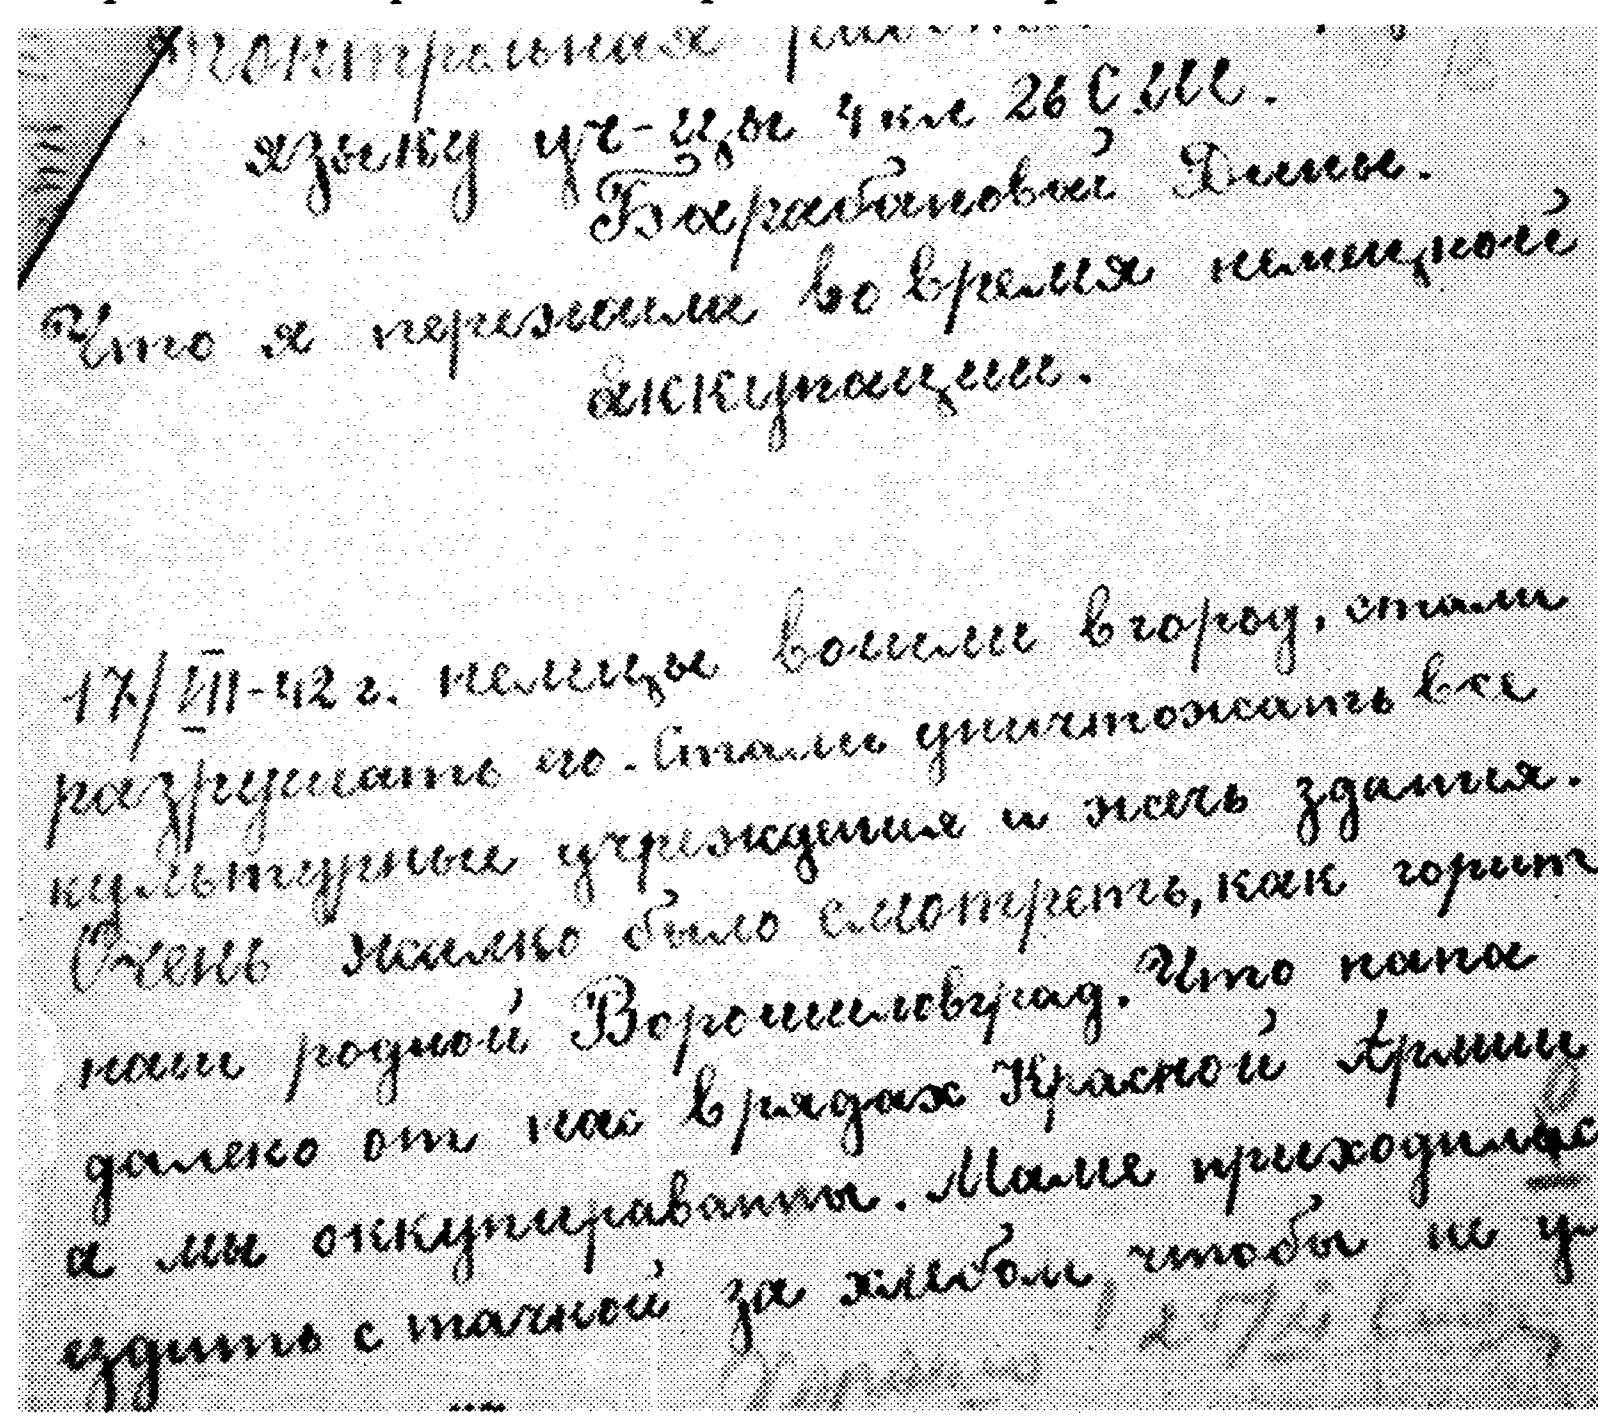 Контрольная
языку уч-цы 4 кл 26 С.Ш.
Барабановой Дины.
Что я пережила во время немецкой
аккупации.
17/VIII-42 г. немцы вошли в город, стали
разрушать его. Стали уничтожать все
культурные учреждения и жечь здания.
Очень жалко было смотреть, как горит
наш родной Ворошиловград. Что папа
далеко от нас в рядах Красной Армии
а мы оккупированы. Маме приходилос
ездить с тачкой за хлебом, чтобы не у